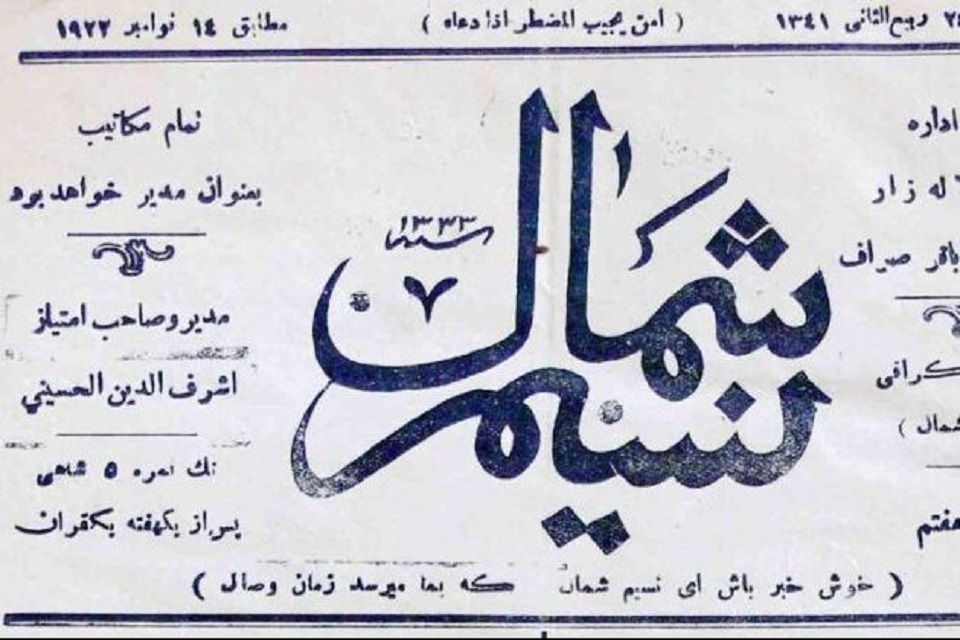 ربیع‌الثانی ۱۳۴۱ ( امن یجیب المضطر اذا دعاه ) مطابق ۱۴ نوامبر ۱۹۲۲
اداره
له زار
باقر صراف
شمال )
هفتم
نسیم شمال
سنه ۱۳۳۳
۷
تمام مکاتیب
بعنوان مدیر خواهد بود
مدیر و صاحب امتیاز
اشرف الدین الحسینی
تك نمره ۵ شاهی
پس از یکهفته یکقران
( خوش خبر باش ای نسیم شمال که بما میرسد زمان وصال )